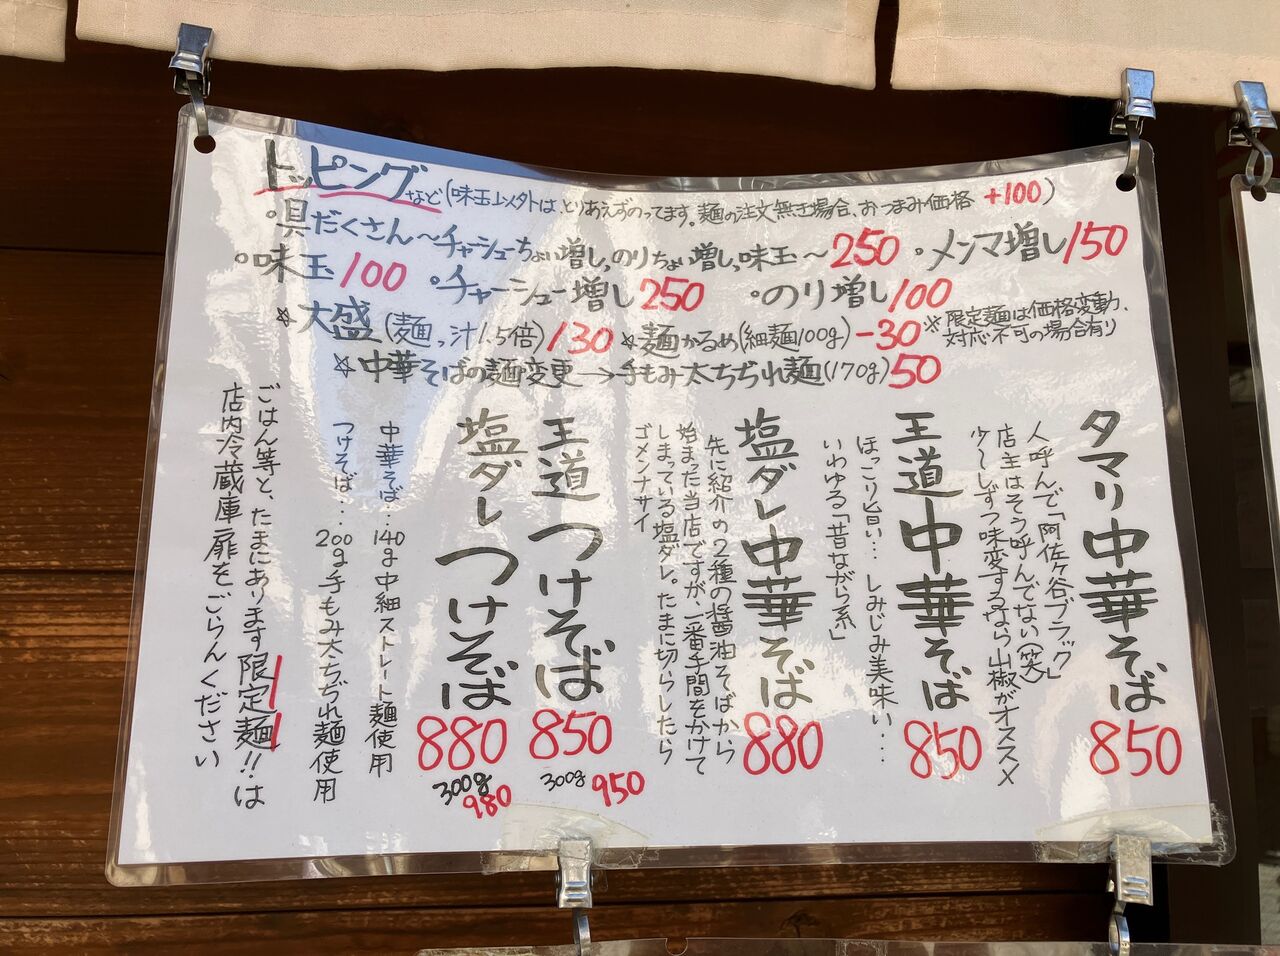 トッピングなど(味玉以外は、とりあえずのってます。麺の注文無き場合、おつまみ価格 +100)
°具だくさん~チャーシューちょい増し、のりちょい増し、味玉~250 °メンマ増し150
°味玉100 °チャーシュー増し250 °のり増し100
☆大盛(麺っ汁1.5倍)130 ☆麺かるめ(細麺100g)-30 ※限定麺は価格変動、対応不可の場合有り
☆中華そばの麺変更→手もみ太ちぢれ麺(170g)50
タマリ中華そば 850
人呼んで「阿佐ヶ谷ブラック」
店主はそう呼んでない(笑)
少ーしずつ味変するなら山椒がオススメ
王道中華そば 850
ほっこり旨い…しみじみ美味い…
いわゆる「昔ながら系」
塩ダレ中華そば 880
先に紹介の2種の醤油そばから
始まった当店ですが、一番手間をかけて
しまっている塩ダレ。たまに切らしたら
ゴメンナサイ
王道つけそば 850
300g 950
塩ダレつけそば 880
300g 980
中華そば…140g中細ストレート麺使用
つけそば…200g手もみ太ちぢれ麺使用
ごはん等と、たまにあります限定麺!!は
店内冷蔵庫扉をごらんください